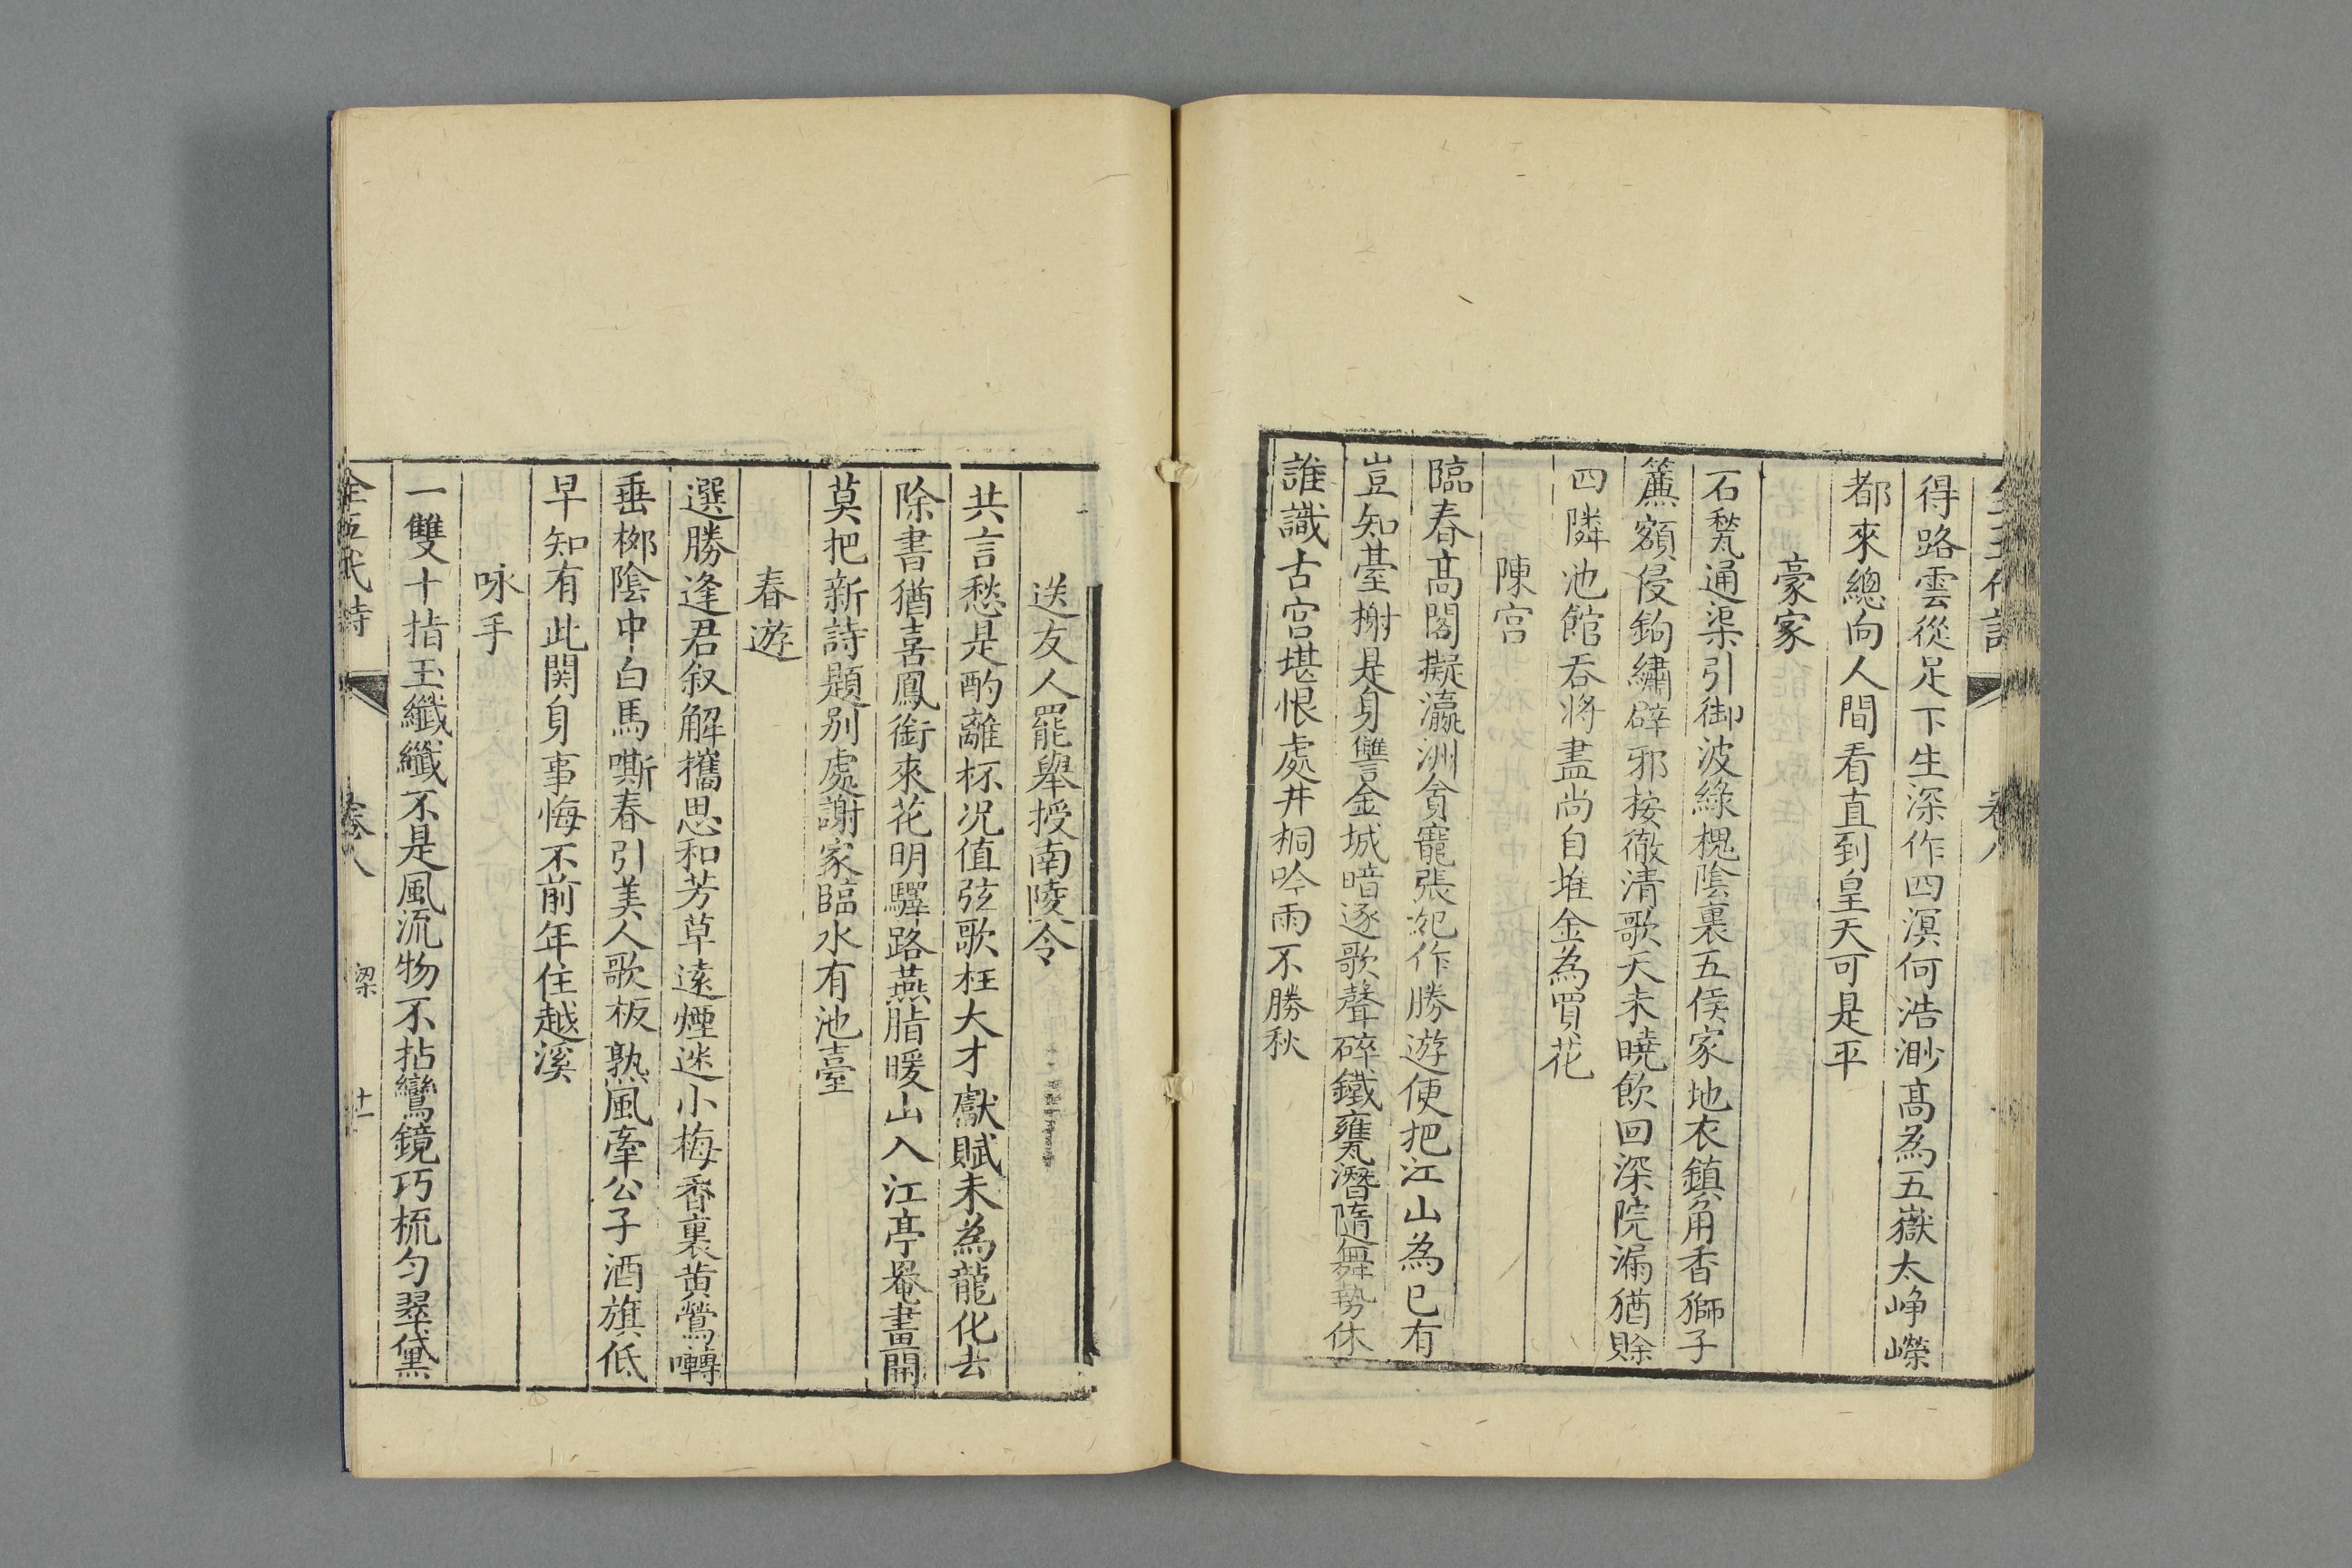 全五代詩 卷八
得路雲從足下生深作四溟何浩渺高為五嶽太崢嶸
都來總向人間看直到皇天可是平
豪家
石甃通渠引御波綠槐陰裏五侯家地衣鎮角香獅子
簾額侵鉤繡辟邪按徹清歌天未曉飲回深院漏猶賒
四隣池館吞將盡尚自堆金為買花
陳宮
臨春高閣擬瀛洲貪寵張妃作勝遊便把江山為已有
豈知臺榭是身讐金城暗逐歌聲碎鐵甕潛隨舞勢休
誰識古宮堪恨處井桐吟雨不勝秋
送友人罷舉授南陵令
共言愁是酌離杯况值弦歌枉大才獻賦未為龍化去
除書猶喜鳳銜來花明驛路燕脂暖山入江亭罨畫開
莫把新詩題别處謝家臨水有池臺
春遊
選勝逢君叙解攜思和芳草遠煙迷小梅香裏黄鶯囀
垂栁陰中白馬嘶春引美人歌板熟風牽公子酒旗低
早知有此関身事悔不前年住越溪
咏手
一雙十指玉纖纖不是風流物不拈鸞鏡巧梳勻翠黛
全五代詩 卷八 梁 十一